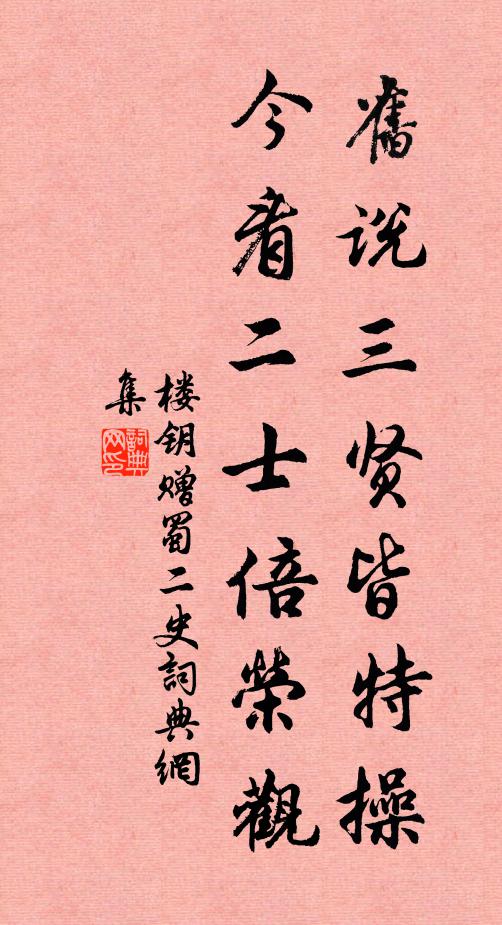 舊说三贤皆特操
今看二士倍榮觀
楼钥赠蜀二史詞典網
集
詞典网印